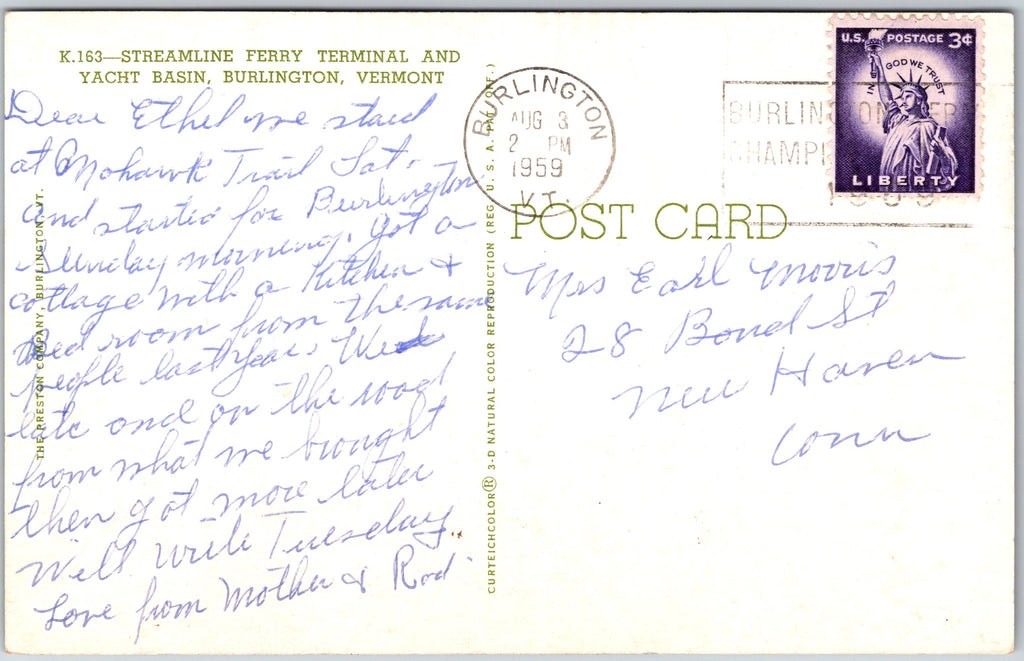 K.163—STREAMLINE FERRY TERMINAL AND
YACHT BASIN, BURLINGTON, VERMONT
Dear Ethel we staid
at Mohawk Trail Sat.
and started for Burlington
Sunday morning, got a
cottage with a Kitchen &
Bed room from the same
people last year. We
ate and on the road
from what we brought
then got more later
Will write Tuesday.
Love from Mother & Rod
THE PRESTON COMPANY, BURLINGTON, VT.
CURTEICHCOLOR® 3-D NATURAL COLOR REPRODUCTION (REG. U. S. A. PAT. OFF.)
BURLINGTON
AUG 3
2 PM
1959
VT.
BURLINGTON
CHAMPL
1959
U.S. POSTAGE 3¢
IN GOD WE TRUST
LIBERTY
POST CARD
Mrs Earl Morris
28 Bond St
New Haven
Conn